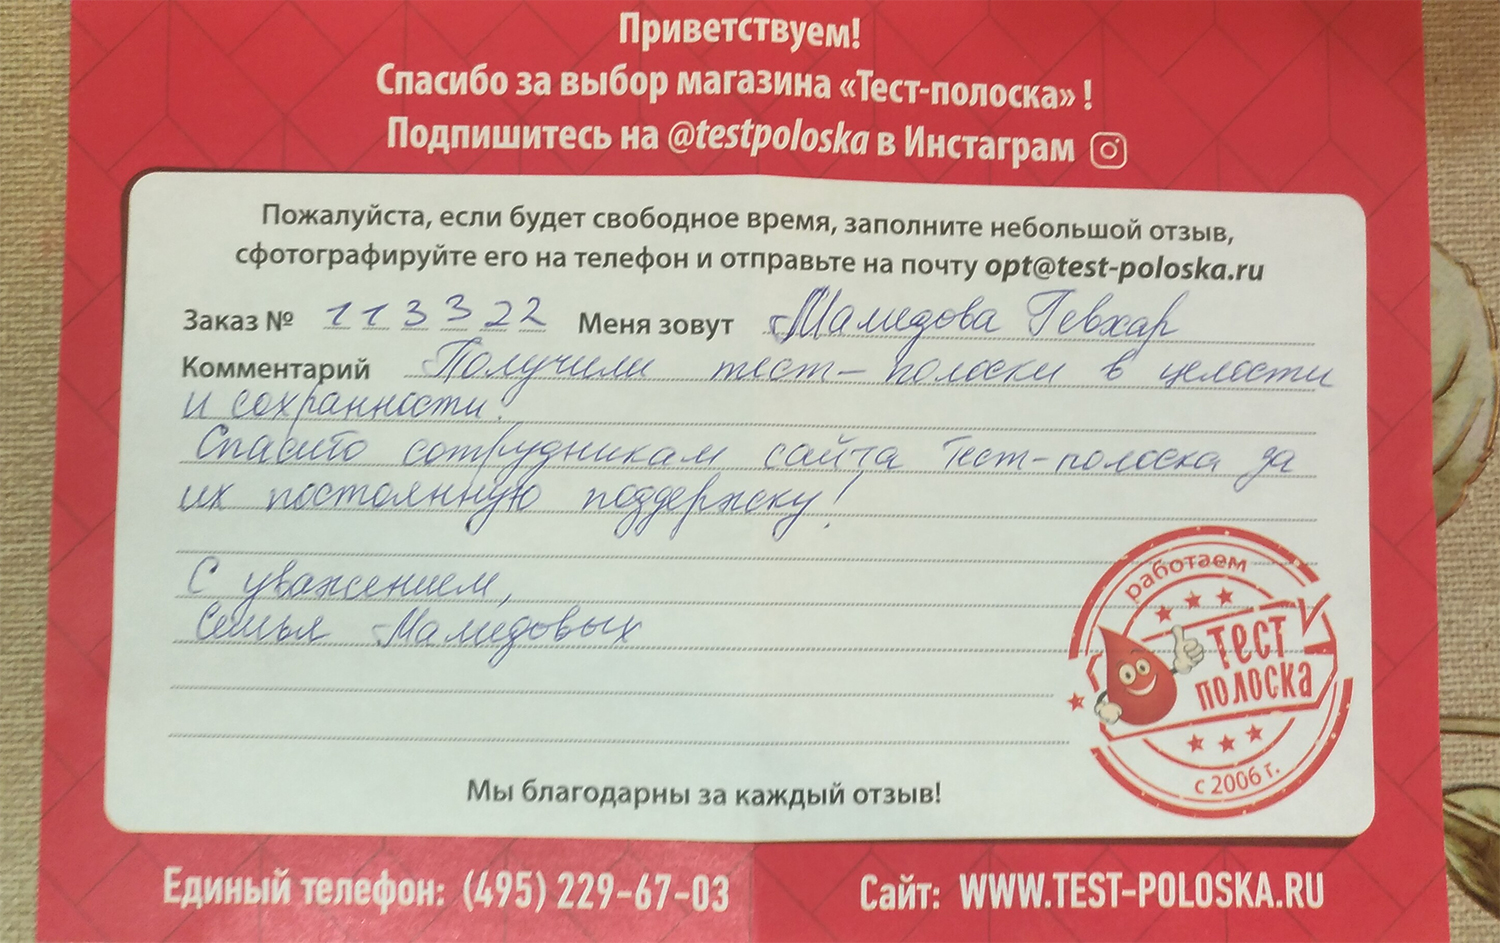 Приветствуем!
Спасибо за выбор магазина «Тест-полоска» !
Подпишитесь на @testpoloska в Инстаграм
Пожалуйста, если будет свободное время, заполните небольшой отзыв,
сфотографируйте его на телефон и отправьте на почту opt@test-poloska.ru
Заказ № 113322 Меня зовут Мамедова Гевхар
Комментарий Получили тест-полоски в целости
и сохранности.
Спасибо сотрудникам сайта Тест-полоска за
их постоянную поддержку!
С уважением,
Семья Мамедовых
работаем
ТЕСТ
ПОЛОСКА
с 2006 г.
Мы благодарны за каждый отзыв!
Единый телефон: (495) 229-67-03 Сайт: WWW.TEST-POLOSKA.RU